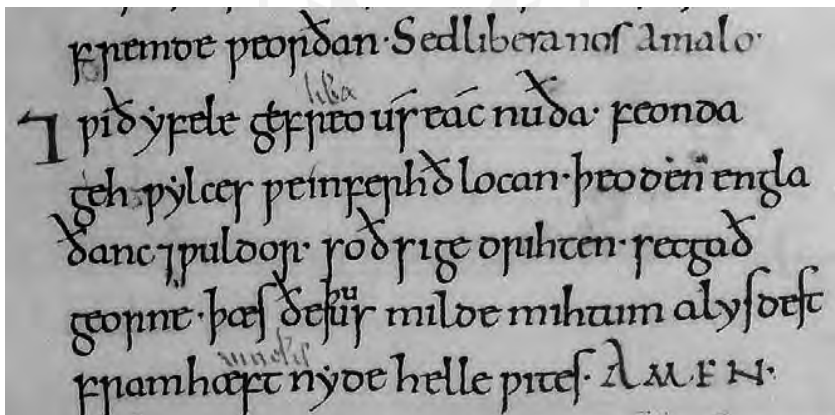 fremde ƿeorðan· Sed libera nos amalo·
⁊ ƿið ẏfele gefreo us eac nu ða· feonda
geh ƿẏlces ƿeinferhð locan· þeoden engla
ðanc ⁊ ƿuldor· soð sige drihten· secgað
georne· þæs ðeþu us milde mihtum alysdest
framhæft nẏde helle ƿites· AMEN·